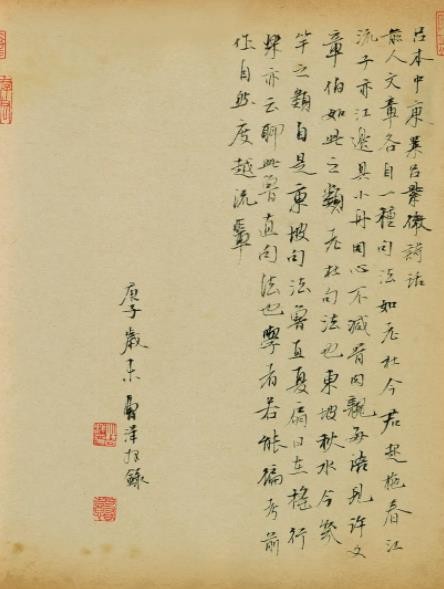 呂本中東萊呂紫微詩話
前人文章各自一種句法如老杜今君起柂春江
流予亦江邊具小舟同心不減骨肉親每語見許文
章伯如此之類老杜句法也東坡秋水今幾
竿之類自是東坡句法魯直夏扇日在搖行
樂亦云聊此魯直句法也學者若能偏考前
作自然度越流輩
庚子歲末錄